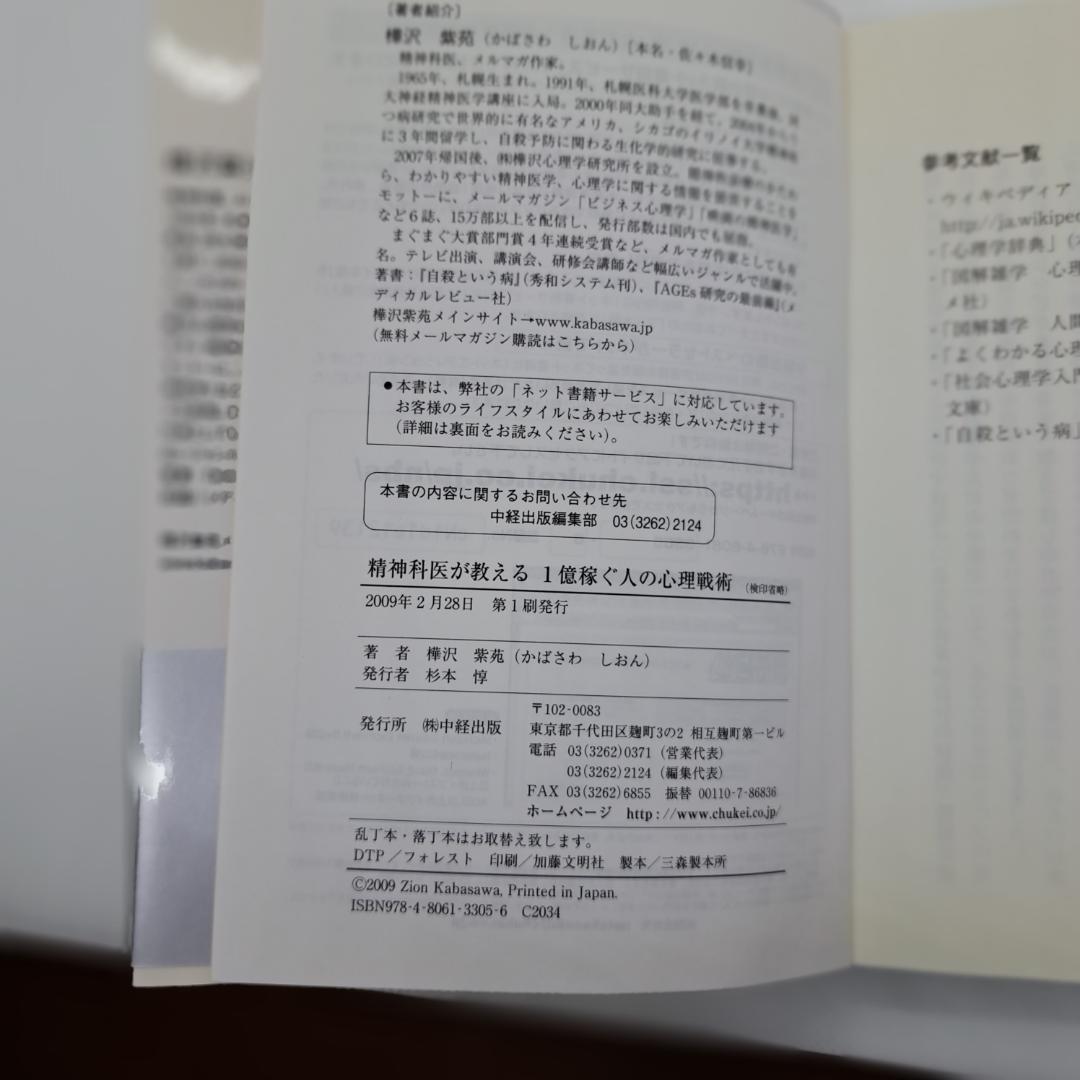 ［著者紹介］
樺沢 紫苑（かばさわ しおん）［本名・佐々木信幸］
精神科医、メルマガ作家。
1965年、札幌生まれ。1991年、札幌医科大学医学部を卒業後、同
大神経精神医学講座に入局。2000年同大助手を経て、2004年から
つ病研究で世界的に有名なアメリカ、シカゴのイリノイ大学
に3年間留学し、自殺予防に関わる生化学的研究に従事する。
2007年帰国後、㈱樺沢心理学研究所を設立。
ら、わかりやすい精神医学、心理学に関する情報を提供することを
モットーに、メールマガジン「ビジネス心理学」「映画の精神医学」
など6誌、15万部以上を配信し、発行部数は国内でも屈指。
まぐまぐ大賞部門賞4年連続受賞など、メルマガ作家としても有
名。テレビ出演、講演会、研修会講師など幅広いジャンルで活躍中。
著書：『自殺という病』（秀和システム刊）、『AGEs研究の最前線』（メ
ディカルレビュー社）
樺沢紫苑メインサイト→www.kabasawa.jp
（無料メールマガジン購読はこちらから）
●本書は、弊社の「ネット書籍サービス」に対応しています。
お客様のライフスタイルにあわせてお楽しみいただけます
（詳細は裏面をお読みください）。
本書の内容に関するお問い合わせ先
中経出版編集部 03(3262)2124
精神科医が教える 1億稼ぐ人の心理戦術 （検印省略）
2009年2月28日 第1刷発行
著 者 樺沢 紫苑（かばさわ しおん）
発行者 杉本 惇
発行所 ㈱中経出版
〒102-0083
東京都千代田区麹町3の2 相互麹町第一ビル
電話 03(3262)0371（営業代表）
03(3262)2124（編集代表）
FAX 03(3262)6855 振替 00110-7-86836
ホームページ http://www.chukei.co.jp/
乱丁本・落丁本はお取替え致します。
DTP／フォレスト 印刷／加藤文明社 製本／三森製本所
©2009 Zion Kabasawa, Printed in Japan.
ISBN978-4-8061-3305-6 C2034
参考文献一覧
・ウィキペディア
http://ja.wikiped
・『心理学辞典』
・『図解雑学 心理
メ社）
・『図解雑学 人間
・『よくわかる心理
・『社会心理学入門
文庫）
・『自殺という病』